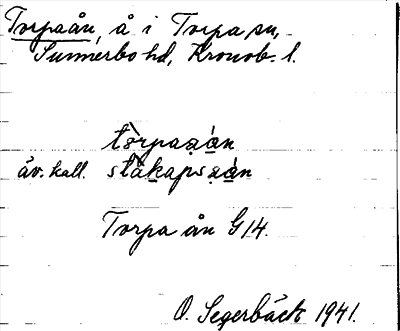 Torpaån, å i Torpa sn,
Sunnerbo hd, Kronob. l.
tòrpaa̤ån
äv. kall. ståkapsa̤ån
Torpa ån G14.
O. Segerbäck 1941.